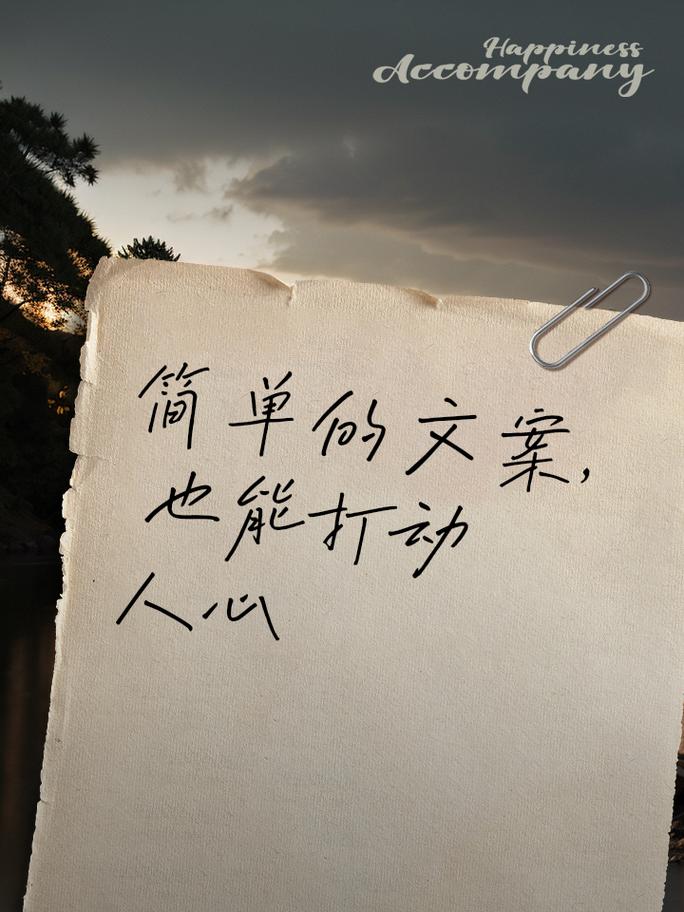 Happiness
Accompany
简单的文案,
也能打动
人心